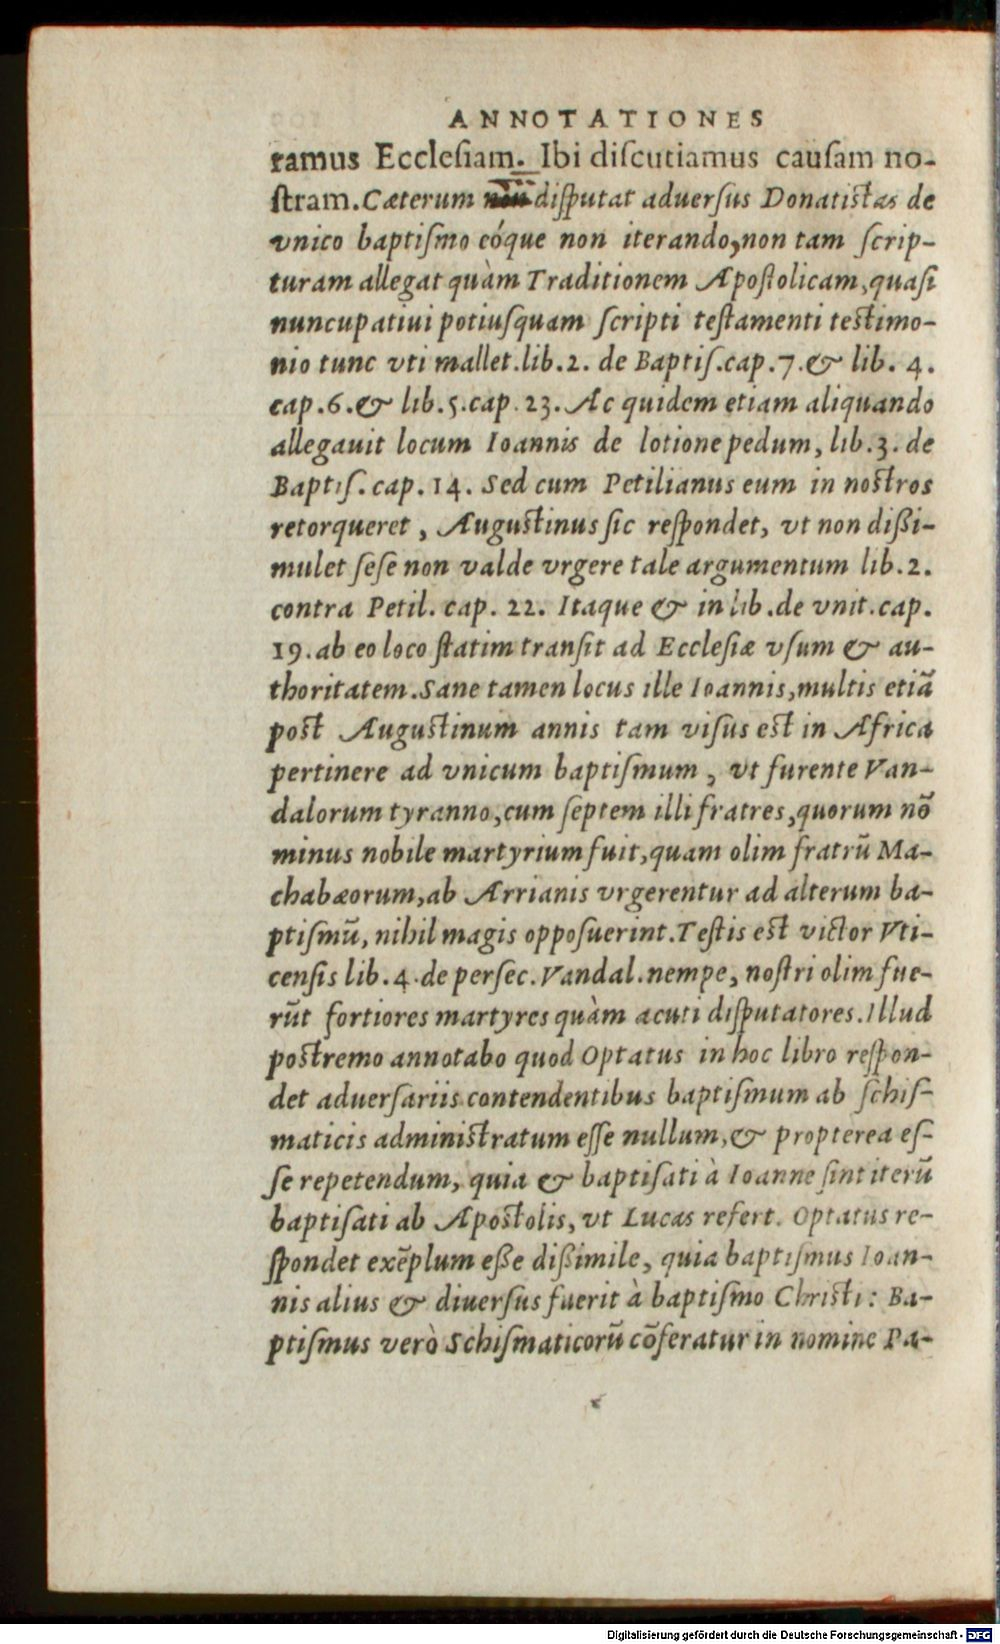 ANNOTATIONES
ramus Eccleſiam. Ibi diſcutiamus cauſam no-
ſtram. Cæterum diſputat aduerſus Donatiſtas de
vnico baptiſmo eóque non iterando, non tam ſcrip-
turam allegat quàm Traditionem Apoſtolicam, quaſi
nuncupatiui potiuſquam ſcripti teſtamenti teſtimo-
nio tunc vti mallet. lib. 2. de Baptiſ. cap. 7. & lib. 4.
cap. 6. & lib. 5. cap. 23. Ac quidem etiam aliquando
allegauit locum Ioannis de lotione pedum, lib. 3. de
Baptiſ. cap. 14. Sed cum Petilianus eum in noſtros
retorqueret, Auguſtinus ſic reſpondet, vt non dißi-
mulet ſeſe non valde vrgere tale argumentum lib. 2.
contra Petil. cap. 22. Itaque & in lib. de vnit. cap.
19. ab eo loco ſtatim tranſit ad Eccleſiæ vſum & au-
thoritatem. Sane tamen locus ille Ioannis, multis etiã
poſt Auguſtinum annis tam viſus eſt in Africa
pertinere ad vnicum baptiſmum, vt furente Van-
dalorum tyranno, cum ſeptem illi fratres, quorum nõ
minus nobile martyrium fuit, quam olim fratrũ Ma-
chabæorum, ab Arrianis vrgerentur ad alterum ba-
ptiſmũ, nihil magis oppoſuerint. Teſtis eſt victor Vti-
cenſis lib. 4. de perſec. Vandal. nempe, noſtri olim fue-
rũt fortiores martyres quàm acuti diſputatores. Illud
poſtremo annotabo quod Optatus in hoc libro reſpon-
det aduerſariis contendentibus baptiſmum ab ſchiſ-
maticis adminiſtratum eſſe nullum, & propterea eſ-
ſe repetendum, quia & baptiſati à Ioanne ſint iterũ
baptiſati ab Apoſtolis, vt Lucas refert. Optatus re-
ſpondet exẽplum eße dißimile, quia baptiſmus Ioan-
nis alius & diuerſus fuerit à baptiſmo Chriſti: Ba-
ptiſmus verò Schiſmaticorũ cõferatur in nomine Pa-
Digitalisierung gefördert durch die Deutsche Forschungsgemeinschaft - DFG